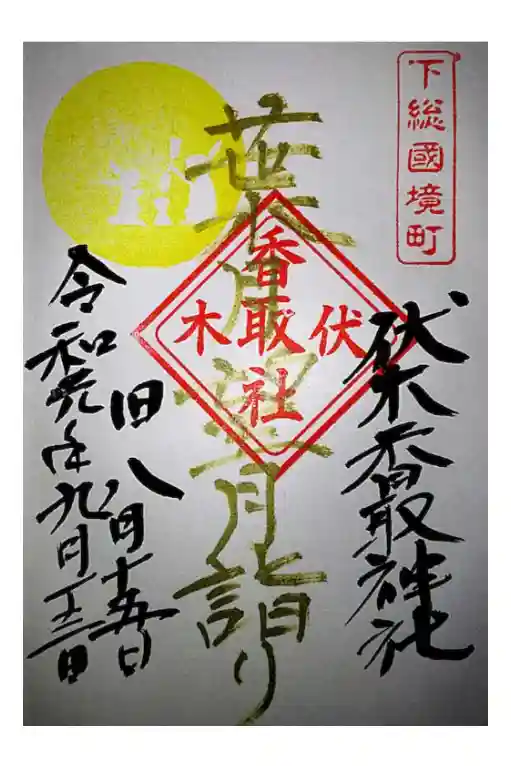 下総國境町
伏木香取神社
葉月満月詣り
伏木
香取社
旧八月十五日
令和元年九月十三日